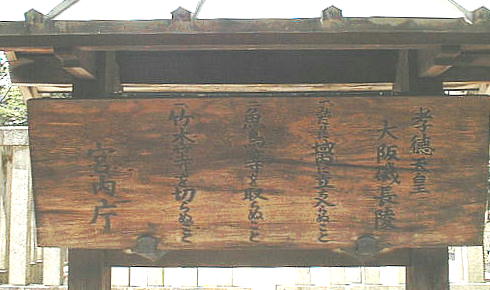 孝德天皇
大阪磯長陵
一、みだりに域内に立ち入らぬこと
一、魚鳥等を取らぬこと
一、竹木等を切らぬこと
宮内庁